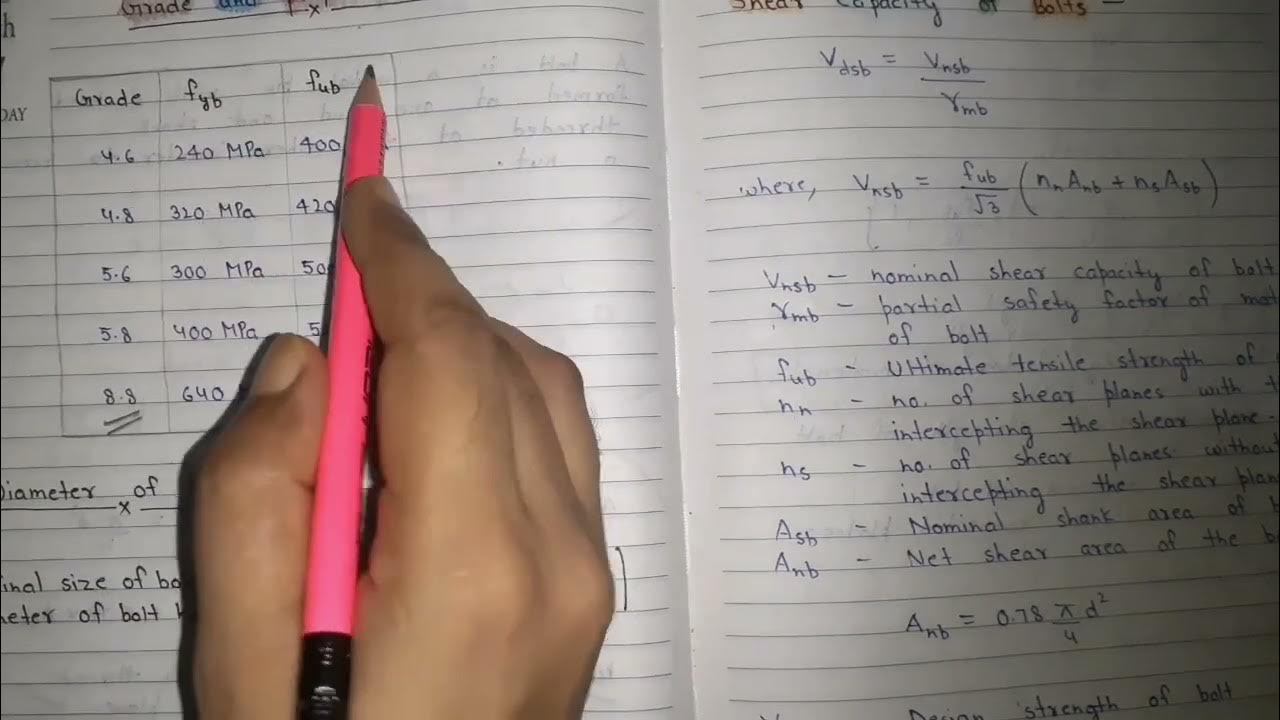 Grade and
Grade fyb fub
4.6 240 MPa 400
4.8 320 MPa 420
5.6 300 MPa 50
5.8 400 MPa 5
8.8 640
Diameter of
inal size of bo
meter of bolt
DAY
Shear Capacity of Bolts -
Vdsb = Vnsb / γmb
where, Vnsb = fub / √3 (nn Anb + ns Asb)
Vnsb - nominal shear capacity of bolt
γmb - partial safety factor of mat
of bolt
fub - Ultimate tensile strength of
nn - no. of shear planes with t
intercepting the shear plane
ns - no. of shear planes withou
intercepting the shear plan
Asb - Nominal shank area of
Anb - Net shear area of the b
Anb = 0.78 π/4 d²
Design strength of bolt